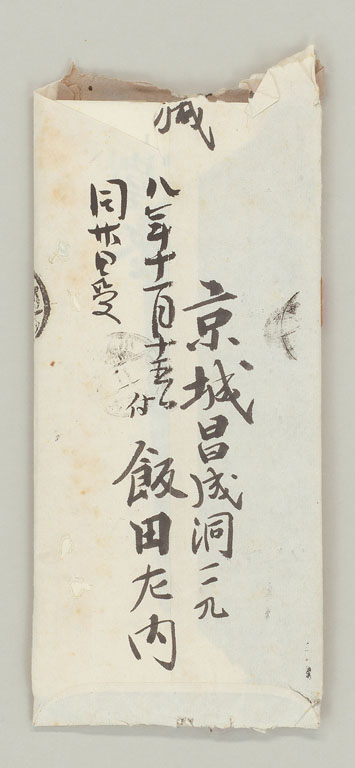 緘
京城昌成洞一二九
飯田左内
八年十一月十五日付
同廿日受